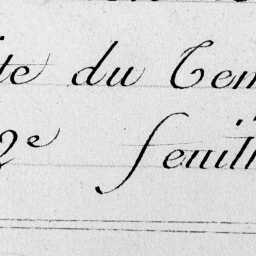 ite du Tem
2e feuill